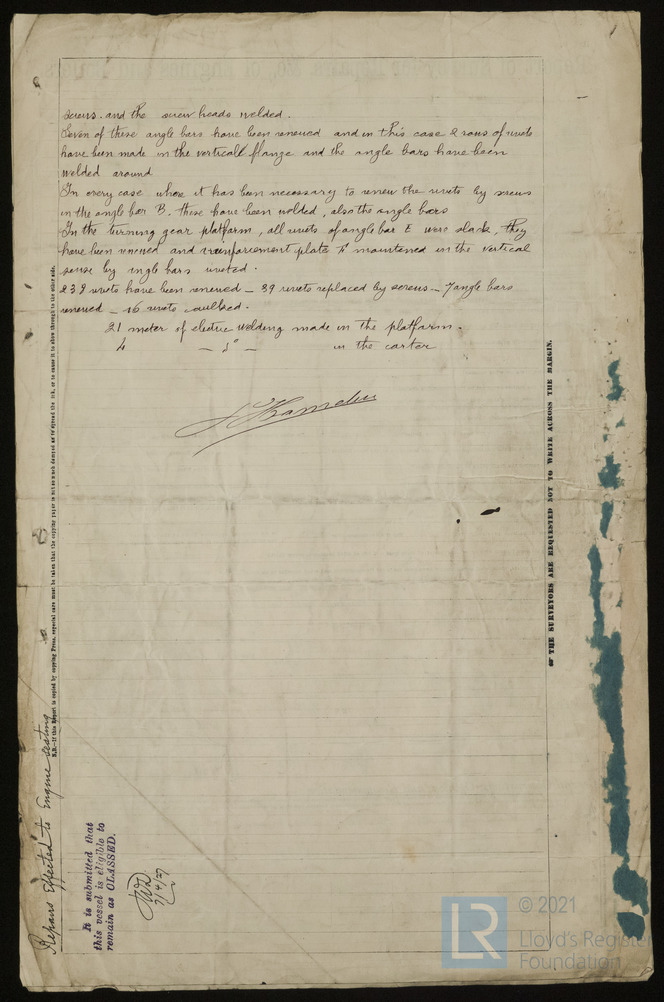 screws. and the screw heads welded.
Seven of these angle bars have been renewed and in this case 2 rows of rivets
have been made in the vertical flange and the angle bars have been
welded around
In every case where it has been necessary to renew the rivets by screws
in the angle bar B, these have been welded, also the angle bars
In the turning gear platform, all rivets of angle bar E were slack, they
have been renewed and reinforcement plate F maintened in the vertical
sense by angle bars riveted.
232 rivets have been renewed _ 39 rivets replaced by screws _ 7 angle bars
renewed _ 16 rivets caulked.
21 meter of electric welding made in the platform.
4 — do — in the carter
N.B.—If this Report is copied by copying Press, especial care must be taken that the copying paper is not so much damped as to spread the ink, or to cause it to show through to the other side.
THE SURVEYORS ARE REQUESTED NOT TO WRITE ACROSS THE MARGIN.
Repairs Effected to Engine seating
It is submitted that
this vessel is eligible to
remain as CLASSED.
7/4/27
LR
© 2021
Lloyd's Register
Foundation